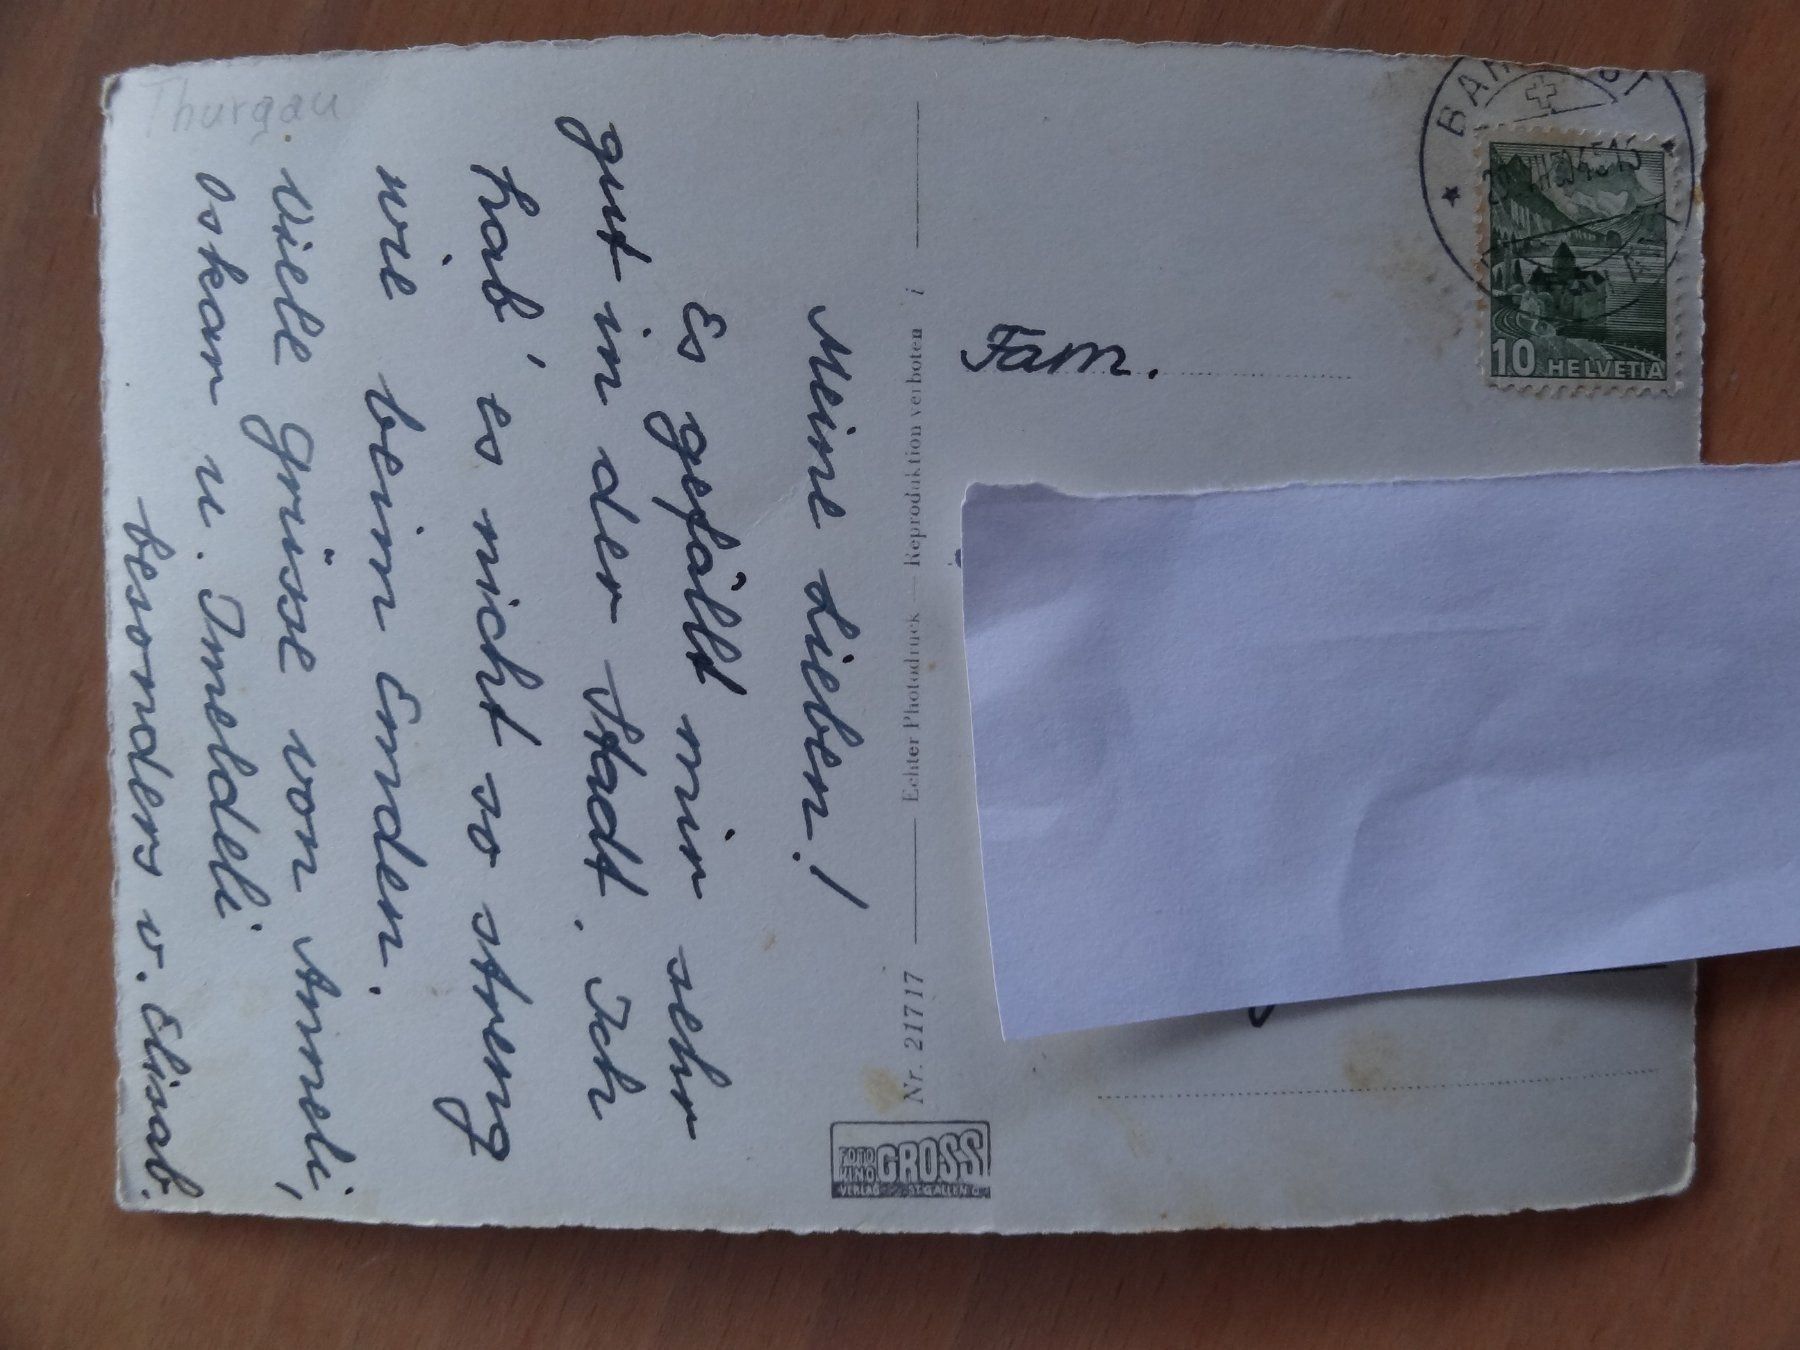 Thurgau
Meine Lieben!
Es gefällt mir sehr
gut im der Stadt. Ich
hab' es nicht so streng
wie beim Emden.
Viele Grüsse von Anneli,
Oskar u. Imeldeli
besonders v. Elisab.
Nr. 21717 Echter Photodruck — Reproduktion verboten i
FOTO
KINO GROSS
VERLAG ST. GALLEN
Fam.
10 HELVETIA